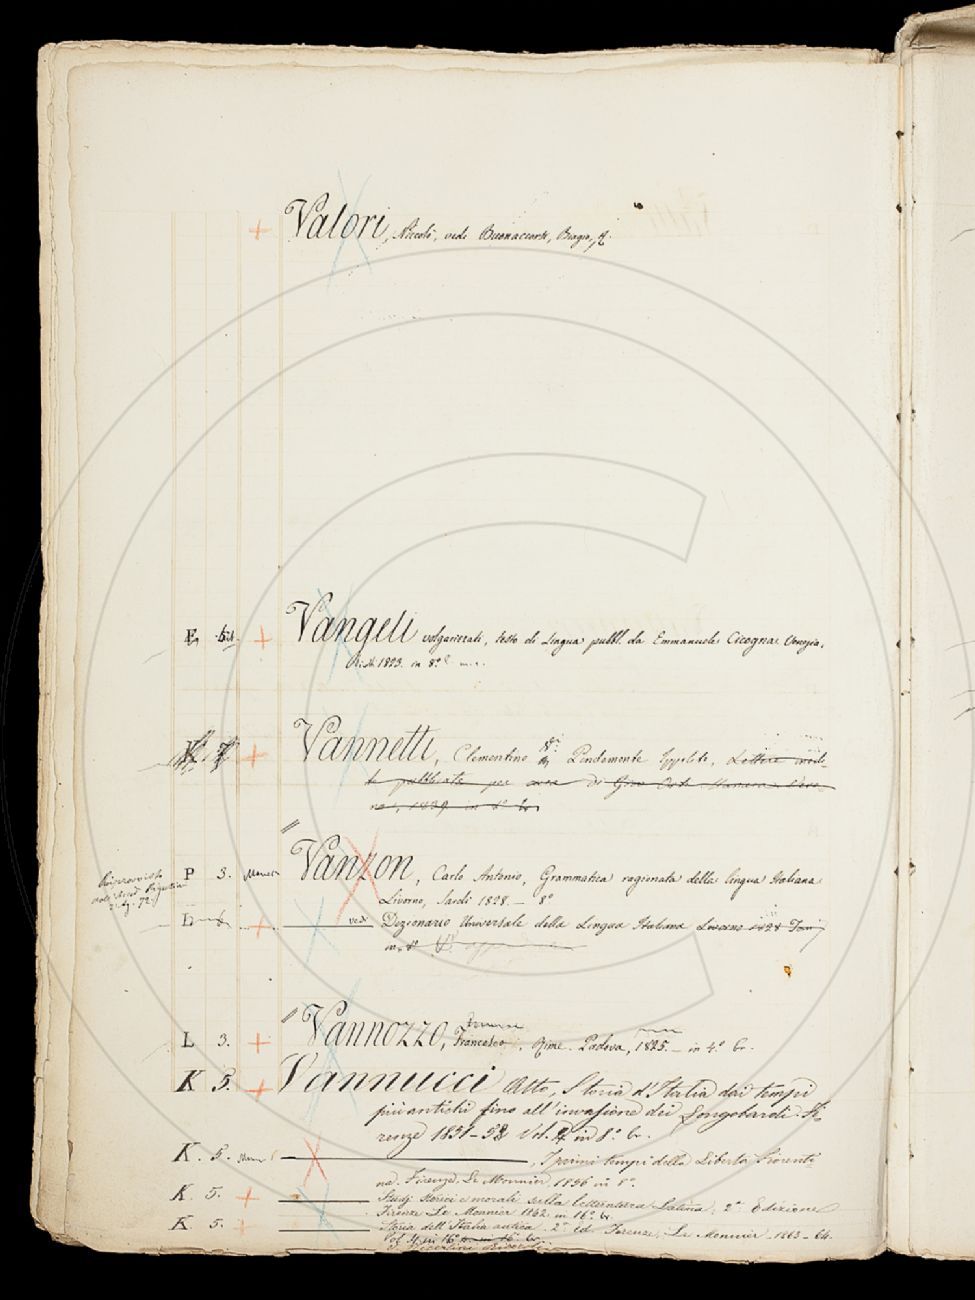 + Valori, Niccolò, vedi Buonaccorsi, Biagio,
+ Vangeli volgarizzati, testo di Lingua pubbl. da Emmanuele Cicogna. Venezia,
1823. in 8º
+ Vannetti, Clementino Pindemonte Ippolito, Lettere inedi-
te pubblicate per cura di
1839 in 8º
P 3. Vanzon, Carlo Antonio, Grammatica ragionata della lingua Italiana
Livorno, Sardi 1828. – 8º
+ vedi Dizionario Universale della Lingua Italiana Livorno 1828
in 8º
L 3. + Vannozzo, Francesco, Rime. Padova, 1825. – in 4º br.
K 5. + Vannucci Atto, Storia d'Italia dai tempi
più antichi fino all'invasione dei Longobardi. Fi
renze 1851–52 Vol. 4 in 8º br.
K. 5. , I primi tempi della Libertà Fiorenti
na. Firenze. Le Monnier 1856 in 8º.
K. 5. + Studj storici e morali sulla letteratura Latina, 2ª Edizione
Firenze Le Monnier 1862. in 16º br.
K 5. + Storia dell'Italia antica. 2ª ed. Firenze, Le Monnier, 1863–64.
Vol. 4 in 16º